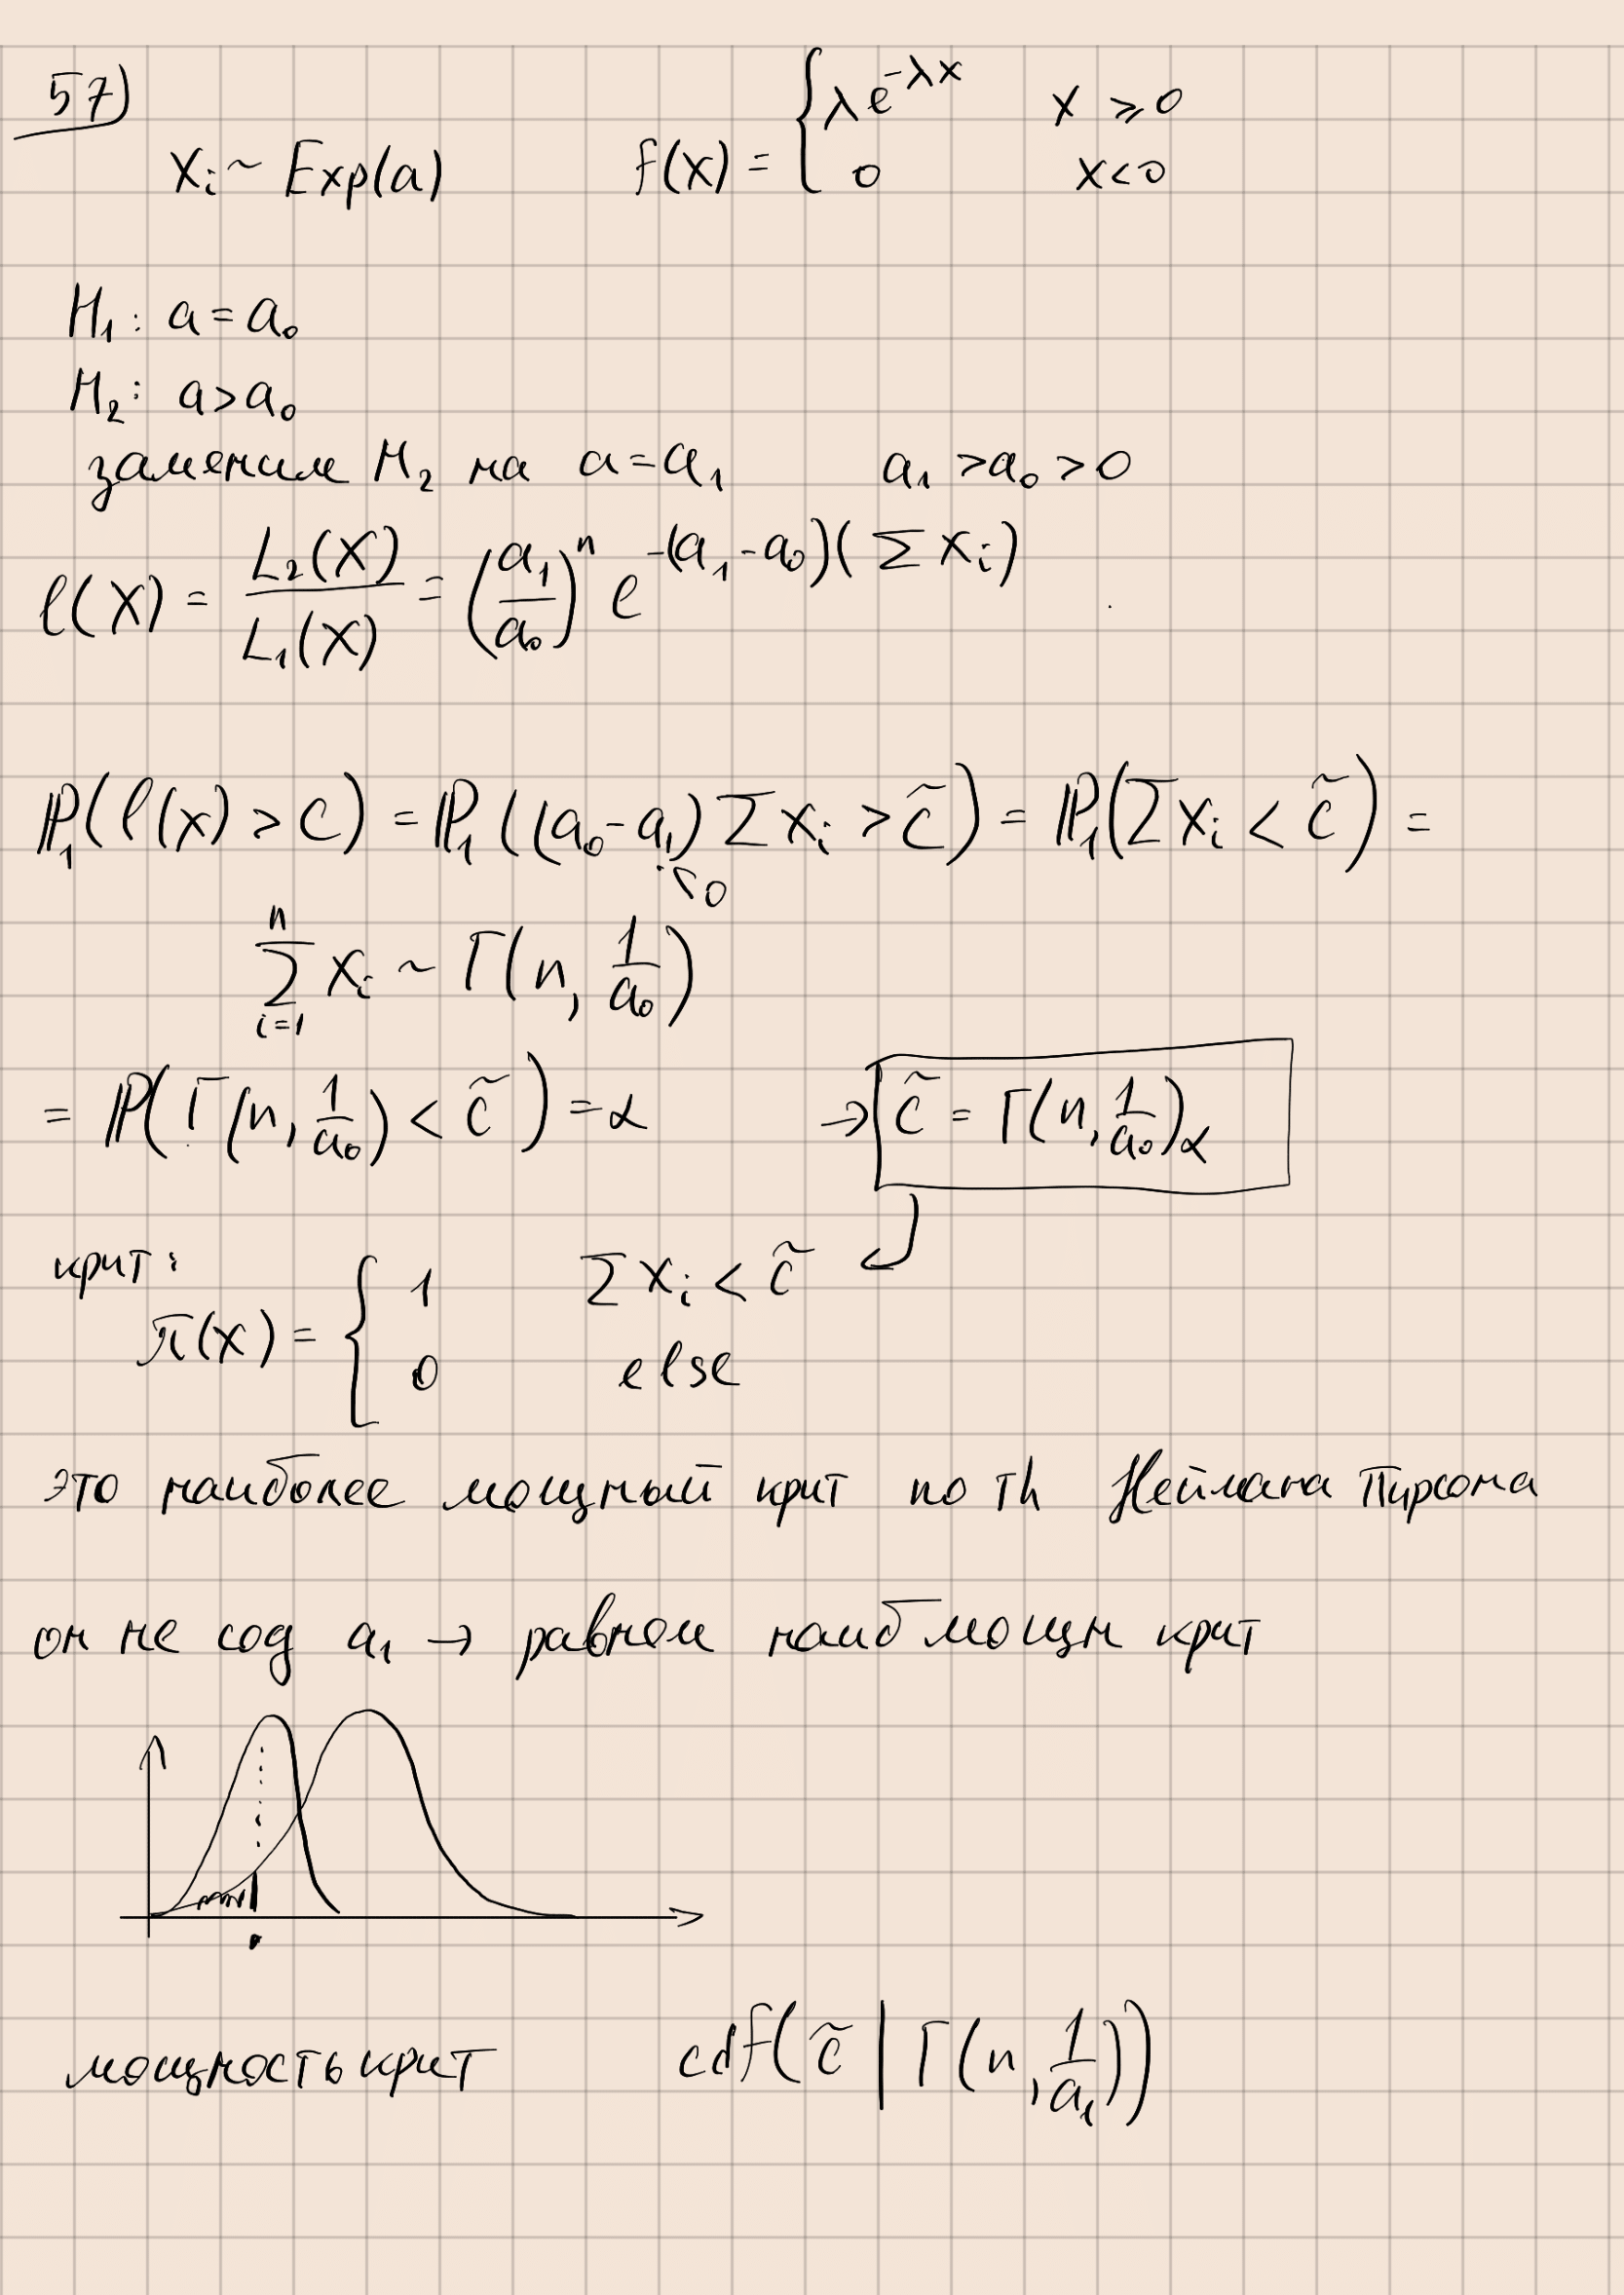 57)
X_i ~ Exp(a)    f(x) = { λe^{-λx}    x ⩾ 0
0    x<0
H_1 : a = a_0
H_2 : a > a_0
заменим H_2 на a = a_1    a_1 > a_0 > 0
ℓ(X) = L_2(X) / L_1(X) = (a_1/a_0)^n e^{-(a_1 - a_0)(Σ x_i)}
ℙ_1(ℓ(x) > c) = ℙ_1((a_0 - a_1) Σ x_i > c̃) = ℙ_1(Σ x_i < c̃) =
< 0
Σ_{i=1}^{n} x_i ~ Γ(n, 1/a_0)
= ℙ(Γ(n, 1/a_0) < c̃) = α    → c̃ = Γ(n, 1/a_0)_α
крит:
π(x) = { 1    Σ x_i < c̃
0    else
это наиболее мощный крит по th Неймана Пирсона
он не сод a_1 → равном наиб мощн крит
мощность крит    cdf(c̃ | Γ(n, 1/a_1))